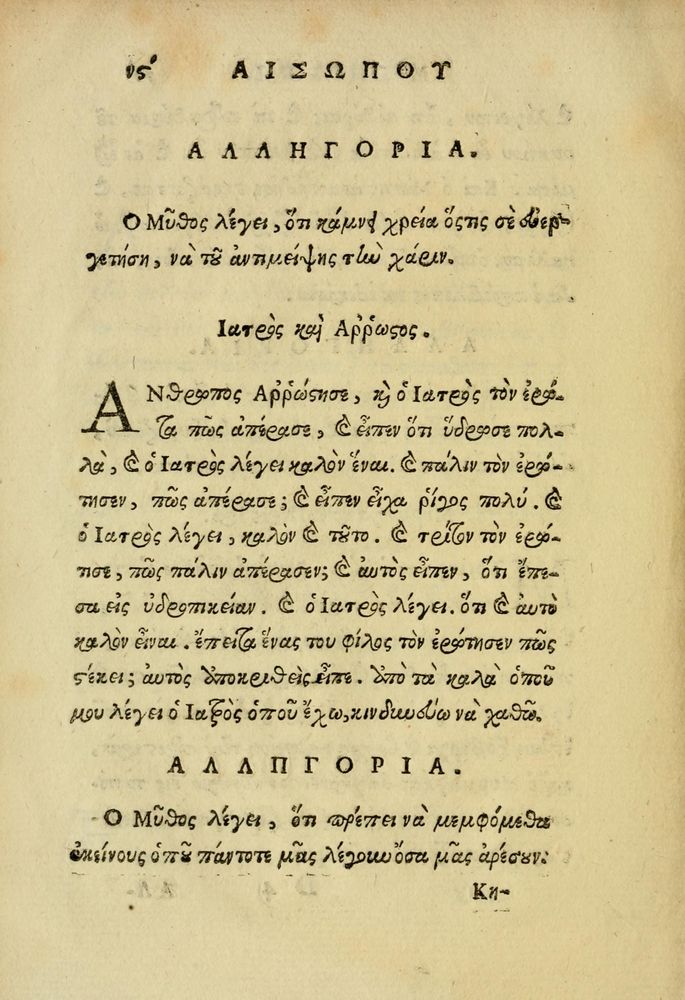 νϛʹ ΑΙΣΩΠΟΥ
ΑΛΛΗΓΟΡΙΑ.
Ο Μῦθος λέγει, ὅτι κάμνει χρεία ὅςτις σὲ ἐυερ-
γετήση, νὰ τοῦ ἀντιμείψης τὴν χάριν.
Ιατρὸς καὶ Αῤῥωϛος.
ΑΝθρωπος Αῤῥώϛησε, κὶ ὁ Ιατρὸς τὸν ἐρώ-
τα πῶς ἀπέρασε, καὶ εἶπεν ὅτι ὕδρωσε πολ-
λὰ, καὶ ὁ Ιατρὸς λέγει καλὸν ἔναι. καὶ πάλιν τὸν ἐρώ-
τησεν, πῶς ἀπέρασε; καὶ εἶπεν εἶχα ῥίγος πολύ. καὶ
ὁ Ιατρὸς λέγει, καλὸν καὶ τοῦτο. καὶ τρίτον τὸν ἐρώ-
τησε, πῶς πάλιν ἀπέρασεν; καὶ ἀυτὸς εἶπεν, ὅτι ἔπε-
σα εἰς ὑδρωπικείαν. καὶ ὁ Ιατρὸς λέγει. ὅτι καὶ ἀυτὸ
καλὸν εἶναι. ἔπειτα ἕνας του φίλος τὸν ἐρώτησεν πῶς
ϛέκει; ἀυτὸς ἀποκριθεὶς εἶπε. ἀπὸ τὰ καλὰ ὁποῦ
μου λέγει ὁ Ιατρὸς ὁποῦ ἔχω, κινδυνεύω νὰ χαθῶ.
ΑΛΛΠΓΟΡΙΑ.
Ο Μῦθος λέγει, ὅτι πρέπει νὰ μεμφόμεθα
ἐκείνους ὁποῦ πάντοτε μᾶς λέγουν ὅσα μᾶς ἀρέσουν.
Κη-